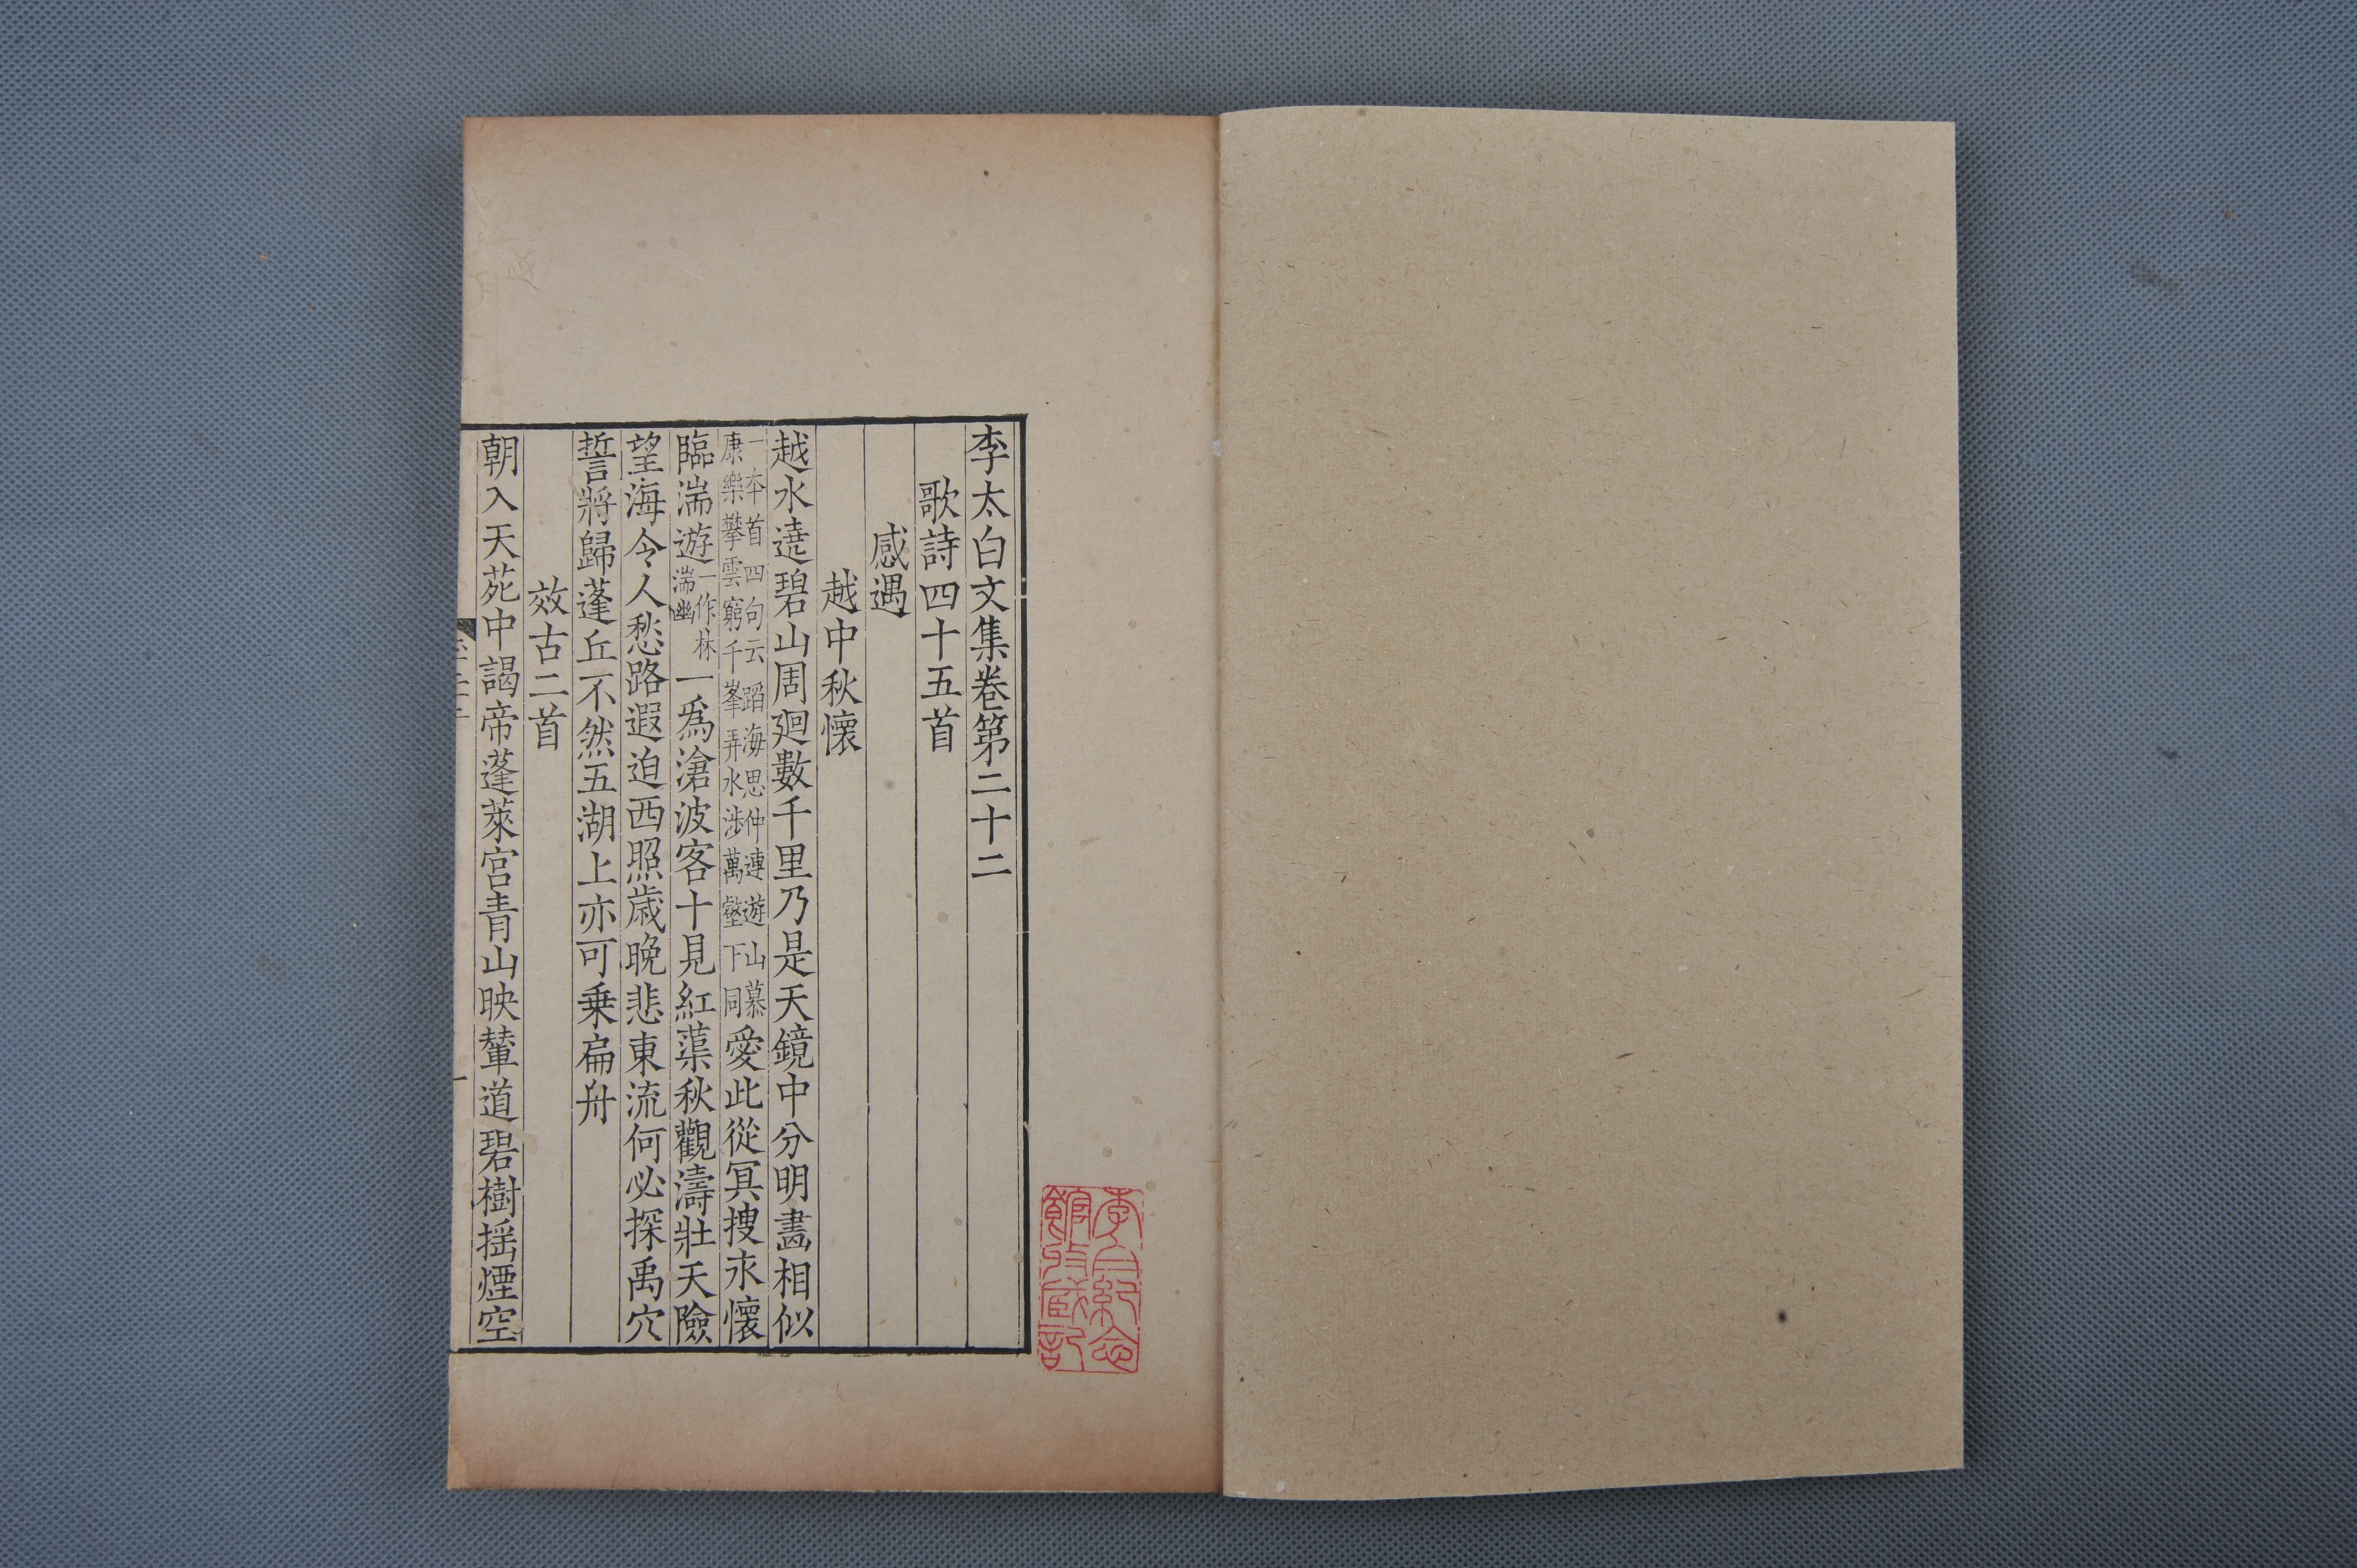 李太白文集卷第二十二
歌詩四十五首
感遇
越中秋懷
越水遶碧山周廻數千里乃是天鏡中分明畵相似
一本首四句云蹈海思仲連遊山慕
康樂攀雲窮千峯弄水涉萬壑下同
愛此從冥搜永懷
臨湍遊
一作林
湍幽
一爲滄波客十見紅蕖秋觀濤壯天險
望海令人愁路遐迫西照歲晚悲東流何必探禹穴
誓將歸蓬丘不然五湖上亦可乗扁舟
效古二首
朝入天苑中謁帝蓬萊宮青山映輦道碧樹揺煙空
李白紀念
館收藏記